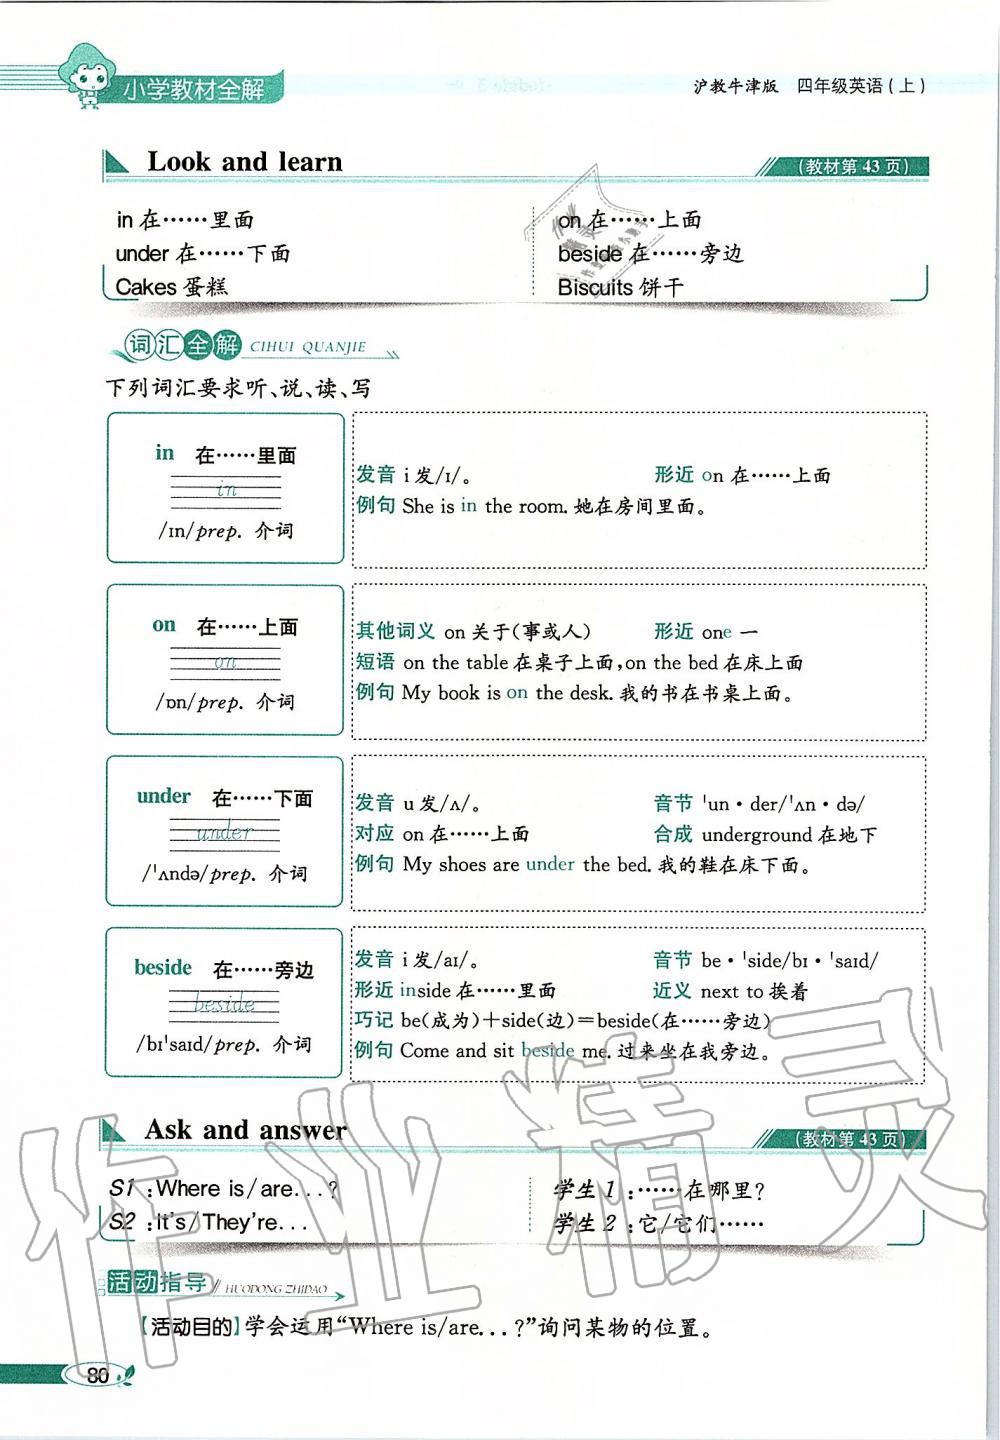 小学教材全解
沪教牛津版 四年级英语(上)
Look and learn
(教材第43页)
in 在……里面
on 在……上面
under 在……下面
beside 在……旁边
Cakes 蛋糕
Biscuits 饼干
词汇全解 CIHUI QUANJIE
下列词汇要求听、说、读、写
in 在……里面
in
/ɪn/prep. 介词
发音 i 发/ɪ/。 形近 on 在……上面
例句 She is in the room. 她在房间里面。
on 在……上面
on
/ɒn/prep. 介词
其他词义 on 关于(事或人) 形近 one 一
短语 on the table 在桌子上面,on the bed 在床上面
例句 My book is on the desk. 我的书在书桌上面。
under 在……下面
under
/ˈʌndə/prep. 介词
发音 u 发/ʌ/。 音节 ˈun·der/ˈʌn·də/
对应 on 在……上面 合成 underground 在地下
例句 My shoes are under the bed. 我的鞋在床下面。
beside 在……旁边
beside
/bɪˈsaɪd/prep. 介词
发音 i 发/aɪ/。 音节 be·ˈside/bɪ·ˈsaɪd/
形近 inside 在……里面 近义 next to 挨着
巧记 be(成为)+side(边)=beside(在……旁边)
例句 Come and sit beside me. 过来坐在我旁边。
Ask and answer
(教材第43页)
S1:Where is/are...?
学生1:……在哪里?
S2:It's/They're...
学生2:它/它们……
活动指导 HUODONG ZHIDAO
【活动目的】学会运用“Where is/are...?”询问某物的位置。
80
作业精灵